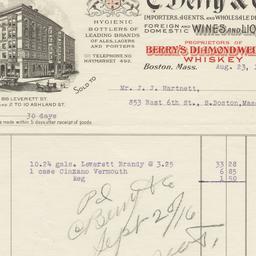 C Berry & C
HYGIENIC
BOTTLERS OF
LEADING BRANDS
OF ALES, LAGERS
AND PORTERS
TELEPHONE NO.
HAYMARKET 492.
IMPORTERS, AGENTS, AND WHOLESALE DE
FOREIGN AND DOMESTIC WINES AND LIQ
PROPRIETORS OF
BERRY'S DIAMOND WED
WHISKEY
Boston, Mass. Aug. 23, 1
88 LEVERETT ST.
AND 2 TO 10 ASHLAND ST.
SOLD TO
Mr. J. J. Hartnett,
853 East 6th St., S.Boston, Mass
30 days
made within 5 days after receipt of goods.
10.24 gals. Leverett Brandy @ 3.25 33 28
1 case Cinzano Vermouth 6 85
Keg 1 50
Pd
C Berry & Co
Sept 20/16